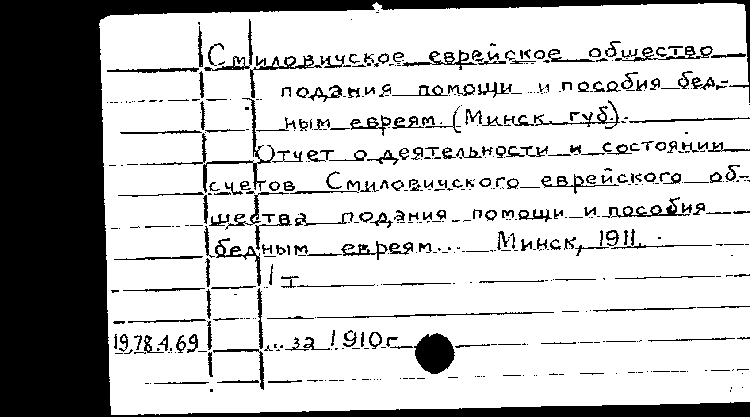 Смиловичское еврейское общество
подания помощи и пособия бед-
ным евреям. (Минск. губ).
Отчет о деятельности и состоянии
счетов Смиловичского еврейского об-
щества подания помощи и пособия
бедным евреям... Минск, 1911.
1 т
19.78.4.69 ... за 1910 г